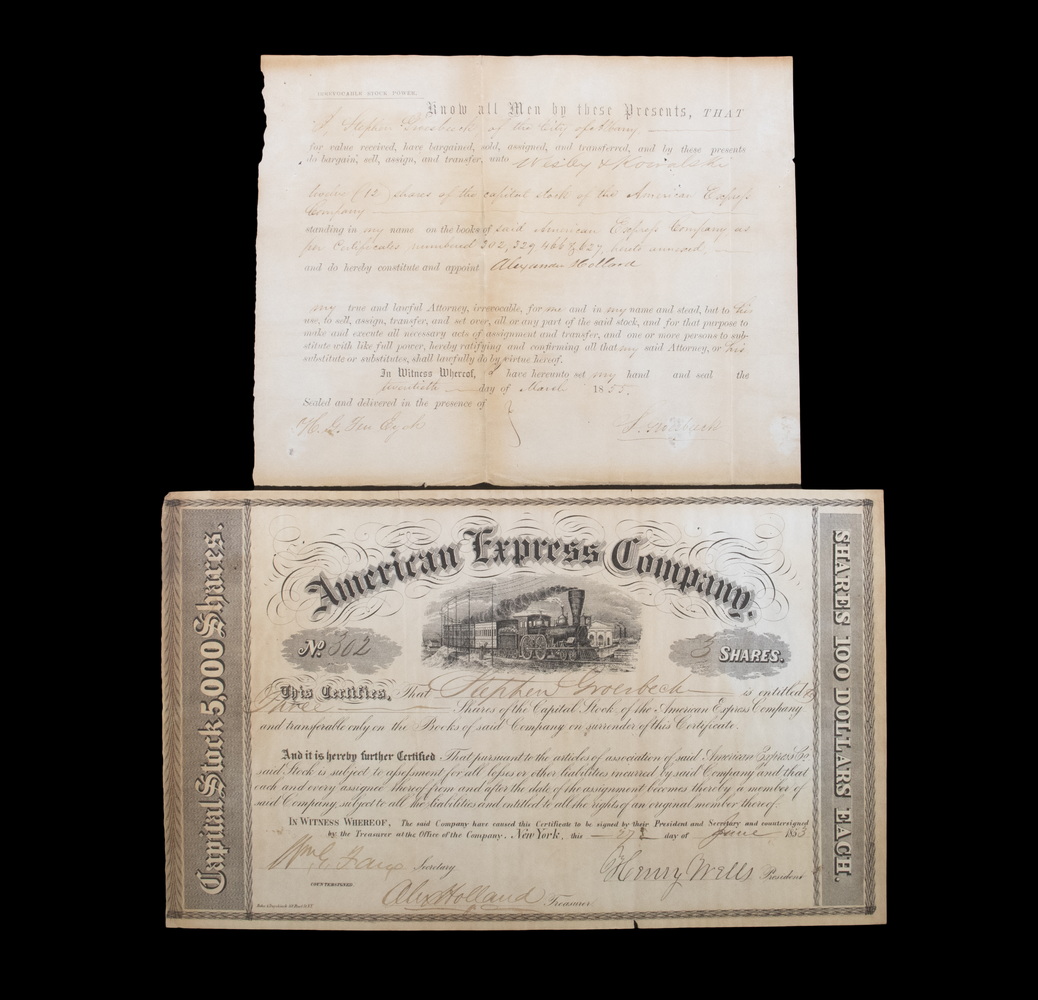 IRREVOCABLE STOCK POWER.
Know all Men by these Presents, THAT
I, Stephen Groesbeeck, of the City of Albany,
for value received, have bargained, sold, assigned, and transferred, and by these presents
do bargain, sell, assign, and transfer, unto Wesley & Kowalski
(12) shares of the capital stock of the American Express
Company
standing in my name on the books of said American Express Company as
per Certificates numbered 302, 329, 466 & 627, hereto annexed,
and do hereby constitute and appoint Alexander Holland
my true and lawful Attorney, irrevocable, for me and in my name and stead, but to his
use, to sell, assign, transfer, and set over, all or any part of the said stock, and for that purpose to
make and execute all necessary acts of assignment and transfer, and one or more persons to sub-
stitute with like full power, hereby ratifying and confirming all that my said Attorney, or his
substitute or substitutes, shall lawfully do by virtue hereof.
In Witness Whereof, I have hereunto set my hand and seal the
twentieth day of March 1855.
Sealed and delivered in the presence of
H. G. Ten Eyck
American Express Company.
No. 302
3 SHARES.
This Certifies, That Stephen Groesbeeck is entitled to
Three Shares of the Capital Stock of the American Express Company
and transferable only on the Books of said Company on surrender of this Certificate.
And it is hereby further Certified That pursuant to the articles of association of said American Express Co
said Stock is subject to assessment for all losses or other liabilities incurred by said Company and that
each and every assignee thereof from and after the date of the assignment becomes thereby a member of
said Company, subject to all the liabilities and entitled to all the rights of an original member thereof.
IN WITNESS WHEREOF, The said Company have caused this Certificate to be signed by their President and Secretary and countersigned
by the Treasurer at the Office of the Company, New York, this 27th day of June 1853
Wm G. Fargo Secretary
Henry Wells President
COUNTERSIGNED.
Alex Holland Treasurer
Capital Stock 5,000 Shares.
SHARES 100 DOLLARS EACH.